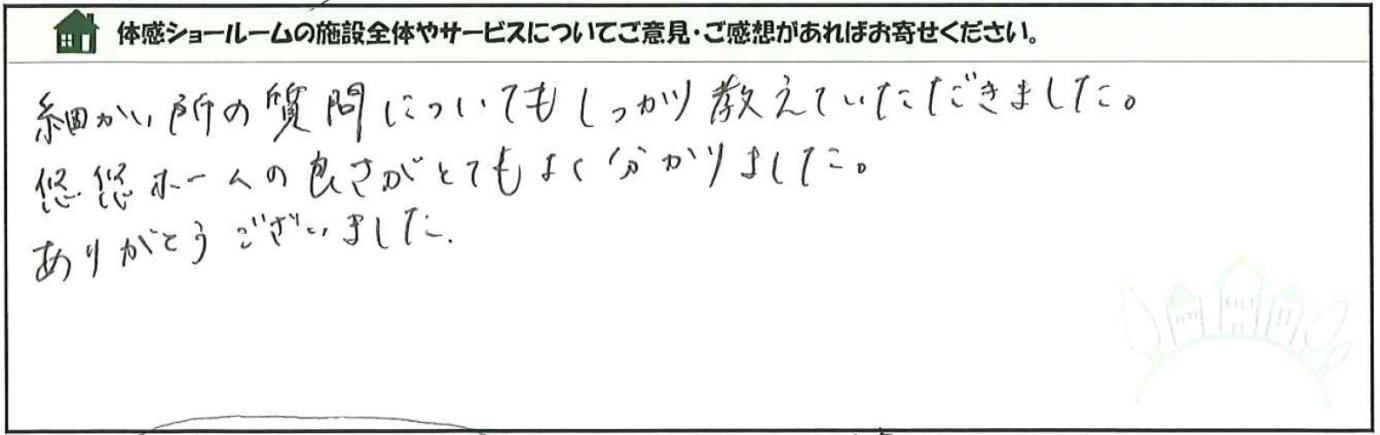 体感ショールームの施設全体やサービスについてご意見・ご感想があればお寄せください。
細かい所の質問についてもしっかり教えていただきました。
悠悠ホームの良さがとてもよく分かりました。
ありがとうございました.